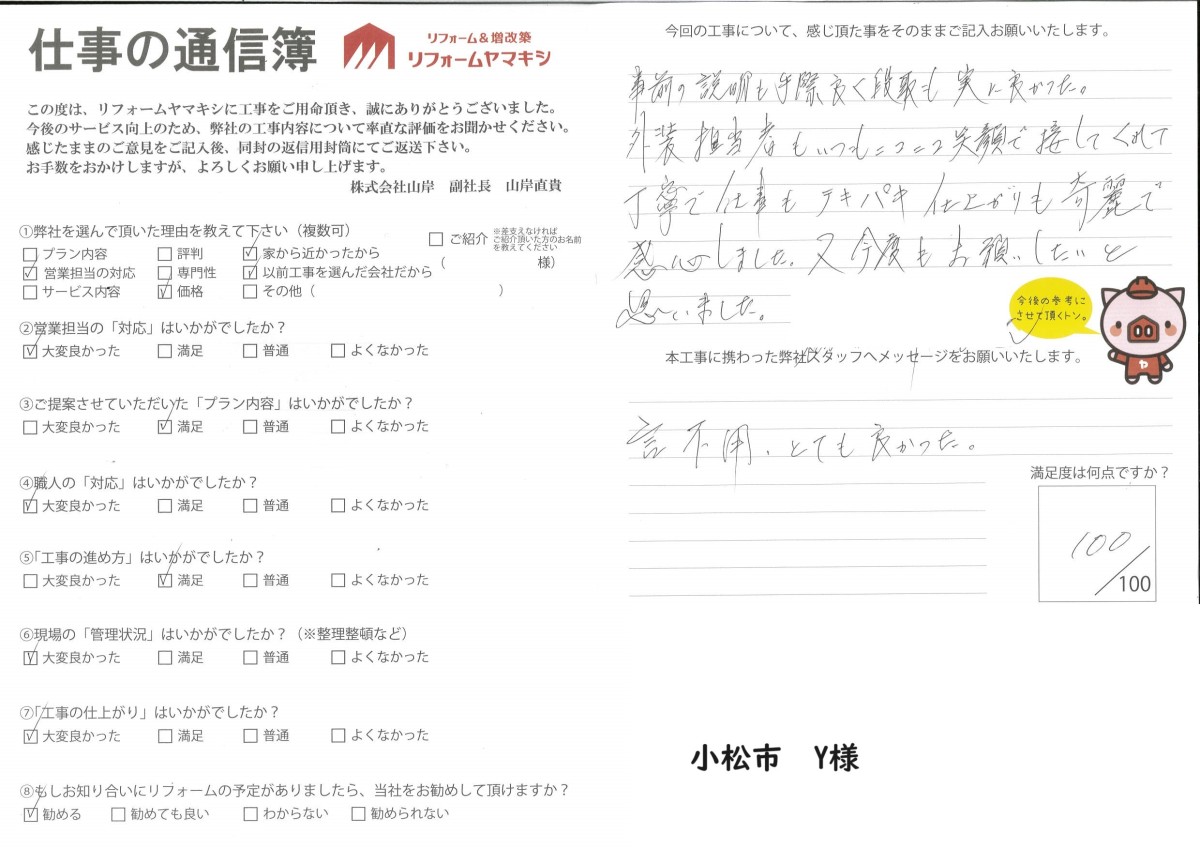 仕事の通信簿
リフォーム&増改築
リフォームヤマキシ
この度は、リフォームヤマキシに工事をご用命頂き、誠にありがとうございました。
今後のサービス向上のため、弊社の工事内容について率直な評価をお聞かせください。
感じたままのご意見をご記入後、同封の返信用封筒にてご返送下さい。
お手数をおかけしますが、よろしくお願い申し上げます。
株式会社山岸 副社長 山岸直貴
①弊社を選んで頂いた理由を教えて下さい(複数可)
□プラン内容 □評判 ☑家から近かったから
☑営業担当の対応 □専門性 ☑以前工事を選んだ会社だから
□サービス内容 ☑価格 □その他( )
□ご紹介 ※差支えなければ
ご紹介頂いた方のお名前
を教えてください
( 様)
②営業担当の「対応」はいかがでしたか?
☑大変良かった □満足 □普通 □よくなかった
③ご提案させていただいた「プラン内容」はいかがでしたか?
□大変良かった ☑満足 □普通 □よくなかった
④職人の「対応」はいかがでしたか?
☑大変良かった □満足 □普通 □よくなかった
⑤「工事の進め方」はいかがでしたか?
□大変良かった ☑満足 □普通 □よくなかった
⑥現場の「管理状況」はいかがでしたか?(※整理整頓など)
☑大変良かった □満足 □普通 □よくなかった
⑦「工事の仕上がり」はいかがでしたか?
☑大変良かった □満足 □普通 □よくなかった
⑧もしお知り合いにリフォームの予定がありましたら、当社をお勧めして頂けますか?
☑勧める □勧めても良い □わからない □勧められない
今回の工事について、感じ頂た事をそのままご記入お願いいたします。
事前の説明も手際良く段取も実に良かった。
外装担当者もいつもニコニコ笑顔で接してくれて
丁寧で仕事もテキパキ仕上がりも奇麗で
感心しました。又今度もお願いしたいと
思いました。
今後の参考に
させて頂くトン。
ヤ
本工事に携わった弊社スタッフへメッセージをお願いいたします。
言不用、とても良かった。
満足度は何点ですか?
100
/100
小松市 Y様